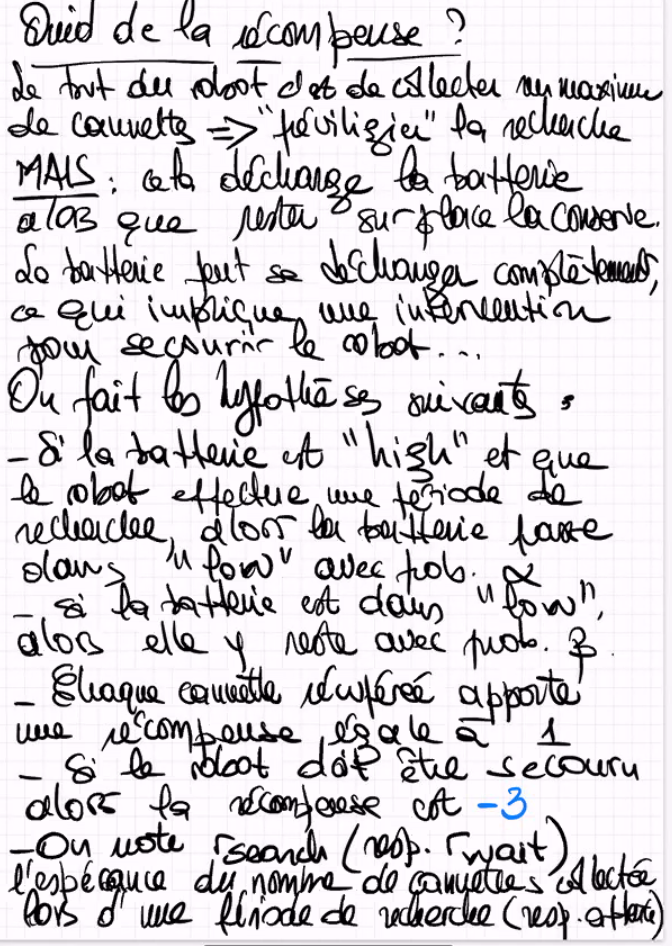 Quid de la récompense ?
Le but du robot est de collecter un maximum
de cannettes => "privilégier" la recherche
MAIS : cela décharge la batterie
alors que rester sur place la conserve.
La batterie peut se décharger complètement,
ce qui implique une intervention
pour secourir le robot...
On fait les hypothèses suivantes :
- Si la batterie est "high" et que
le robot effectue une période de
recherche, alors la batterie passe
dans "low" avec prob. α
- si la batterie est dans "low",
alors elle y reste avec prob. β.
- Chaque cannette récupérée apporte
une récompense égale à 1
- Si le robot doit être secouru
alors la récompense est -3
- On note rsearch (resp. rwait)
l'espérance du nombre de cannettes collectée
lors d'une période de recherche (resp. attente)